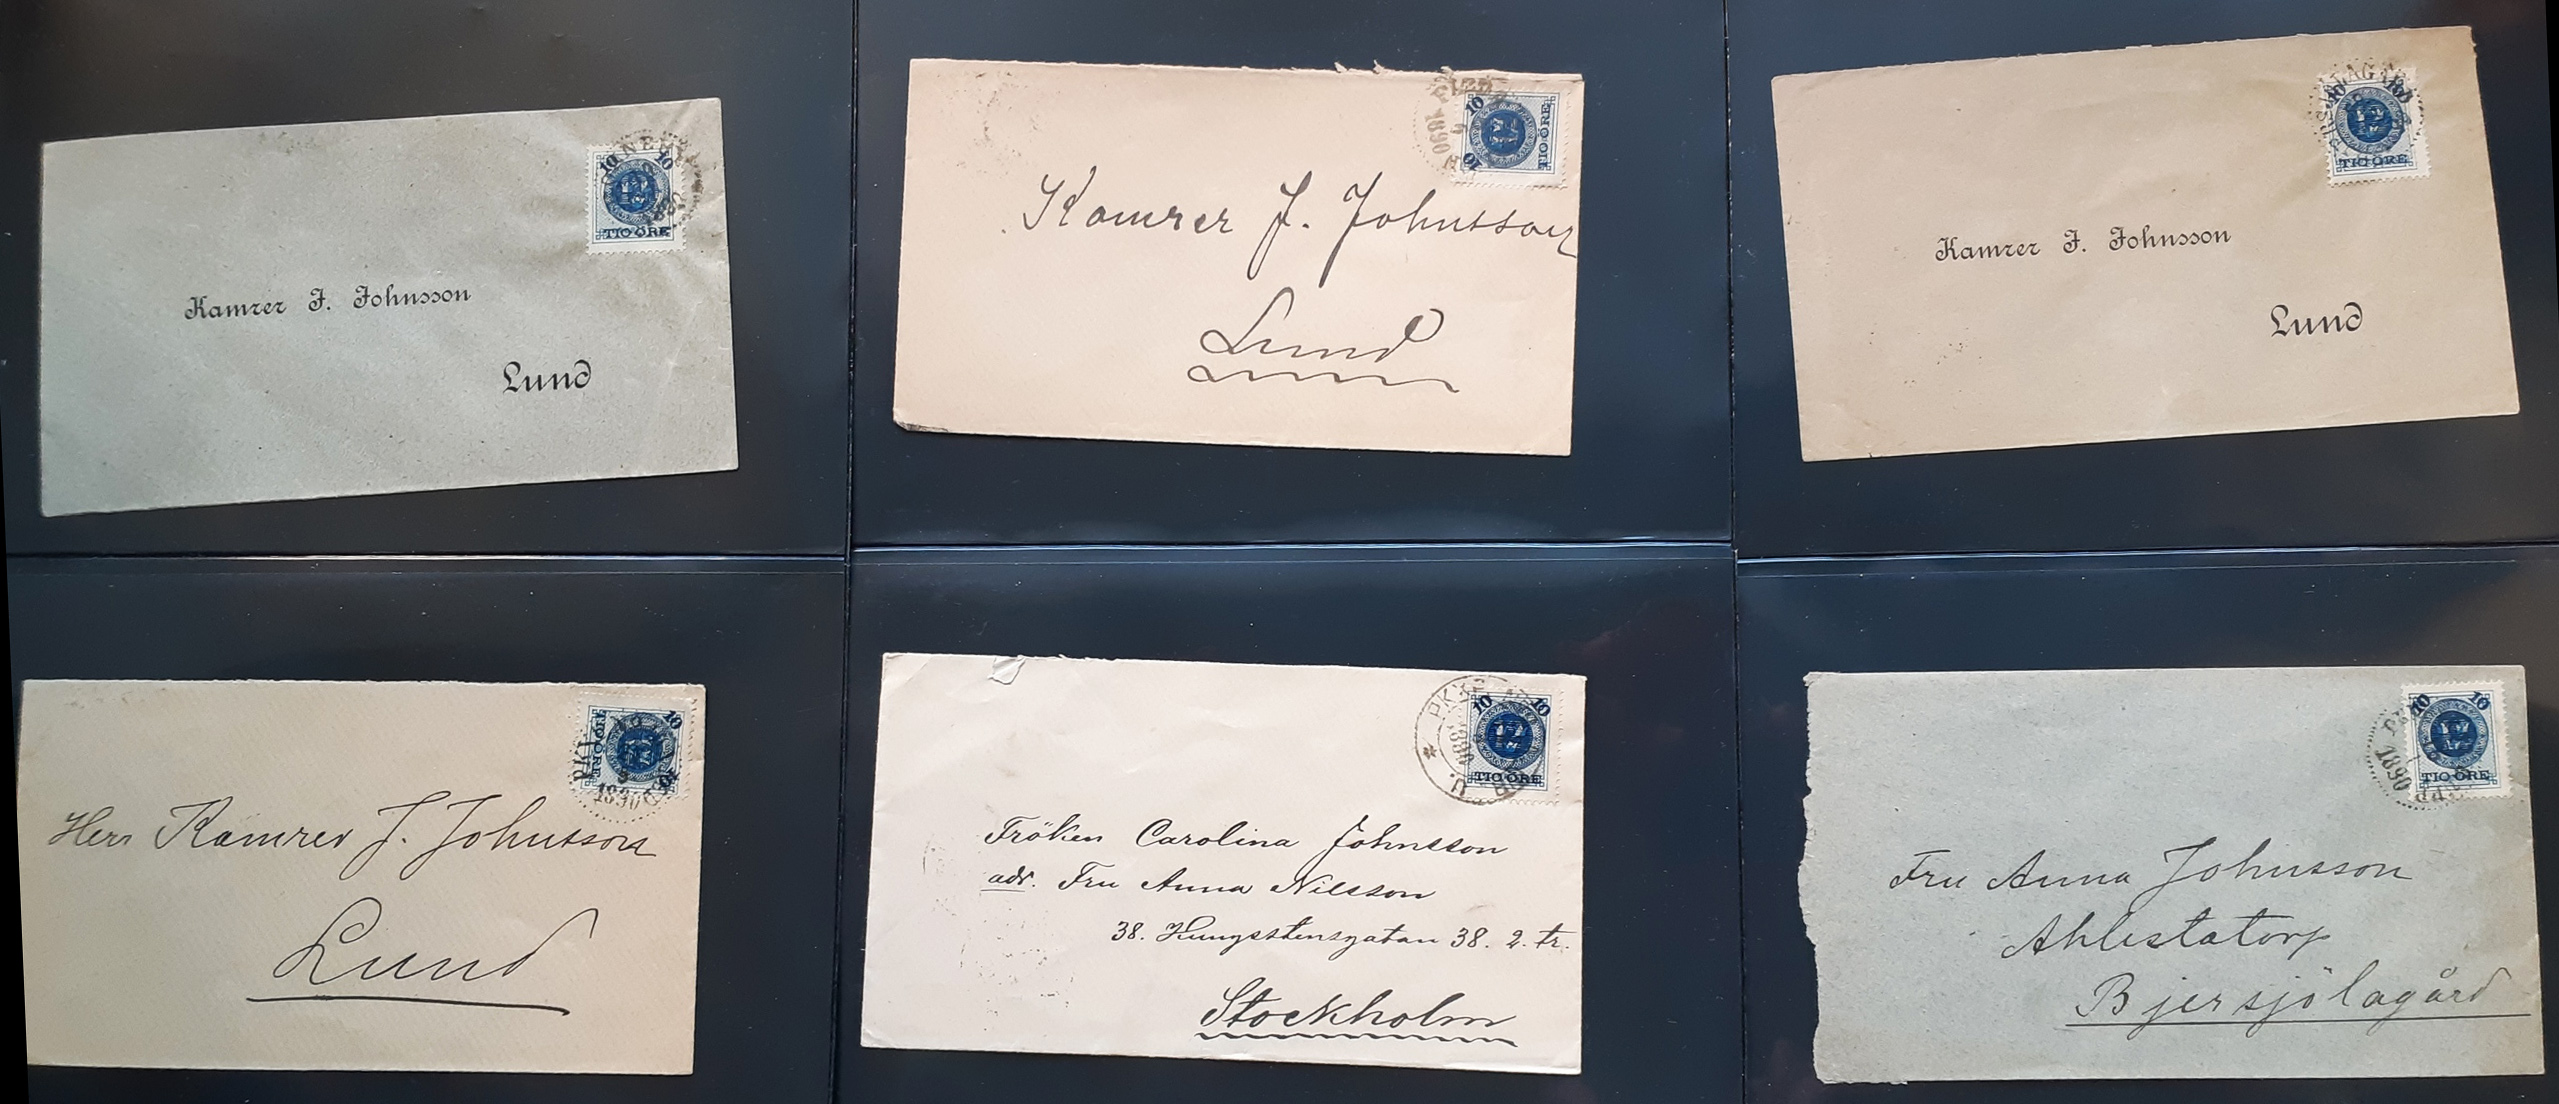 10 10
TIO ÖRE
Kamrer J. Johnsson
Lund
1890
10
10
TIO ÖRE
Kamrer J. Johnsson
Lund
10 10
TIO ÖRE
Kamrer J. Johnsson
Lund
10
10
TIO ÖRE
1890
Herr Kamrer J. Johnsson
Lund
10 10
TIO ÖRE
Fröken Carolina Johnsson
adr. Fru Anna Nilsson
38. Kungsstensgatan 38. 2. tr.
Stockholm
10 10
TIO ÖRE
1890
Fru Anna Johnsson
Ahlestatorp
Bjersjölagård